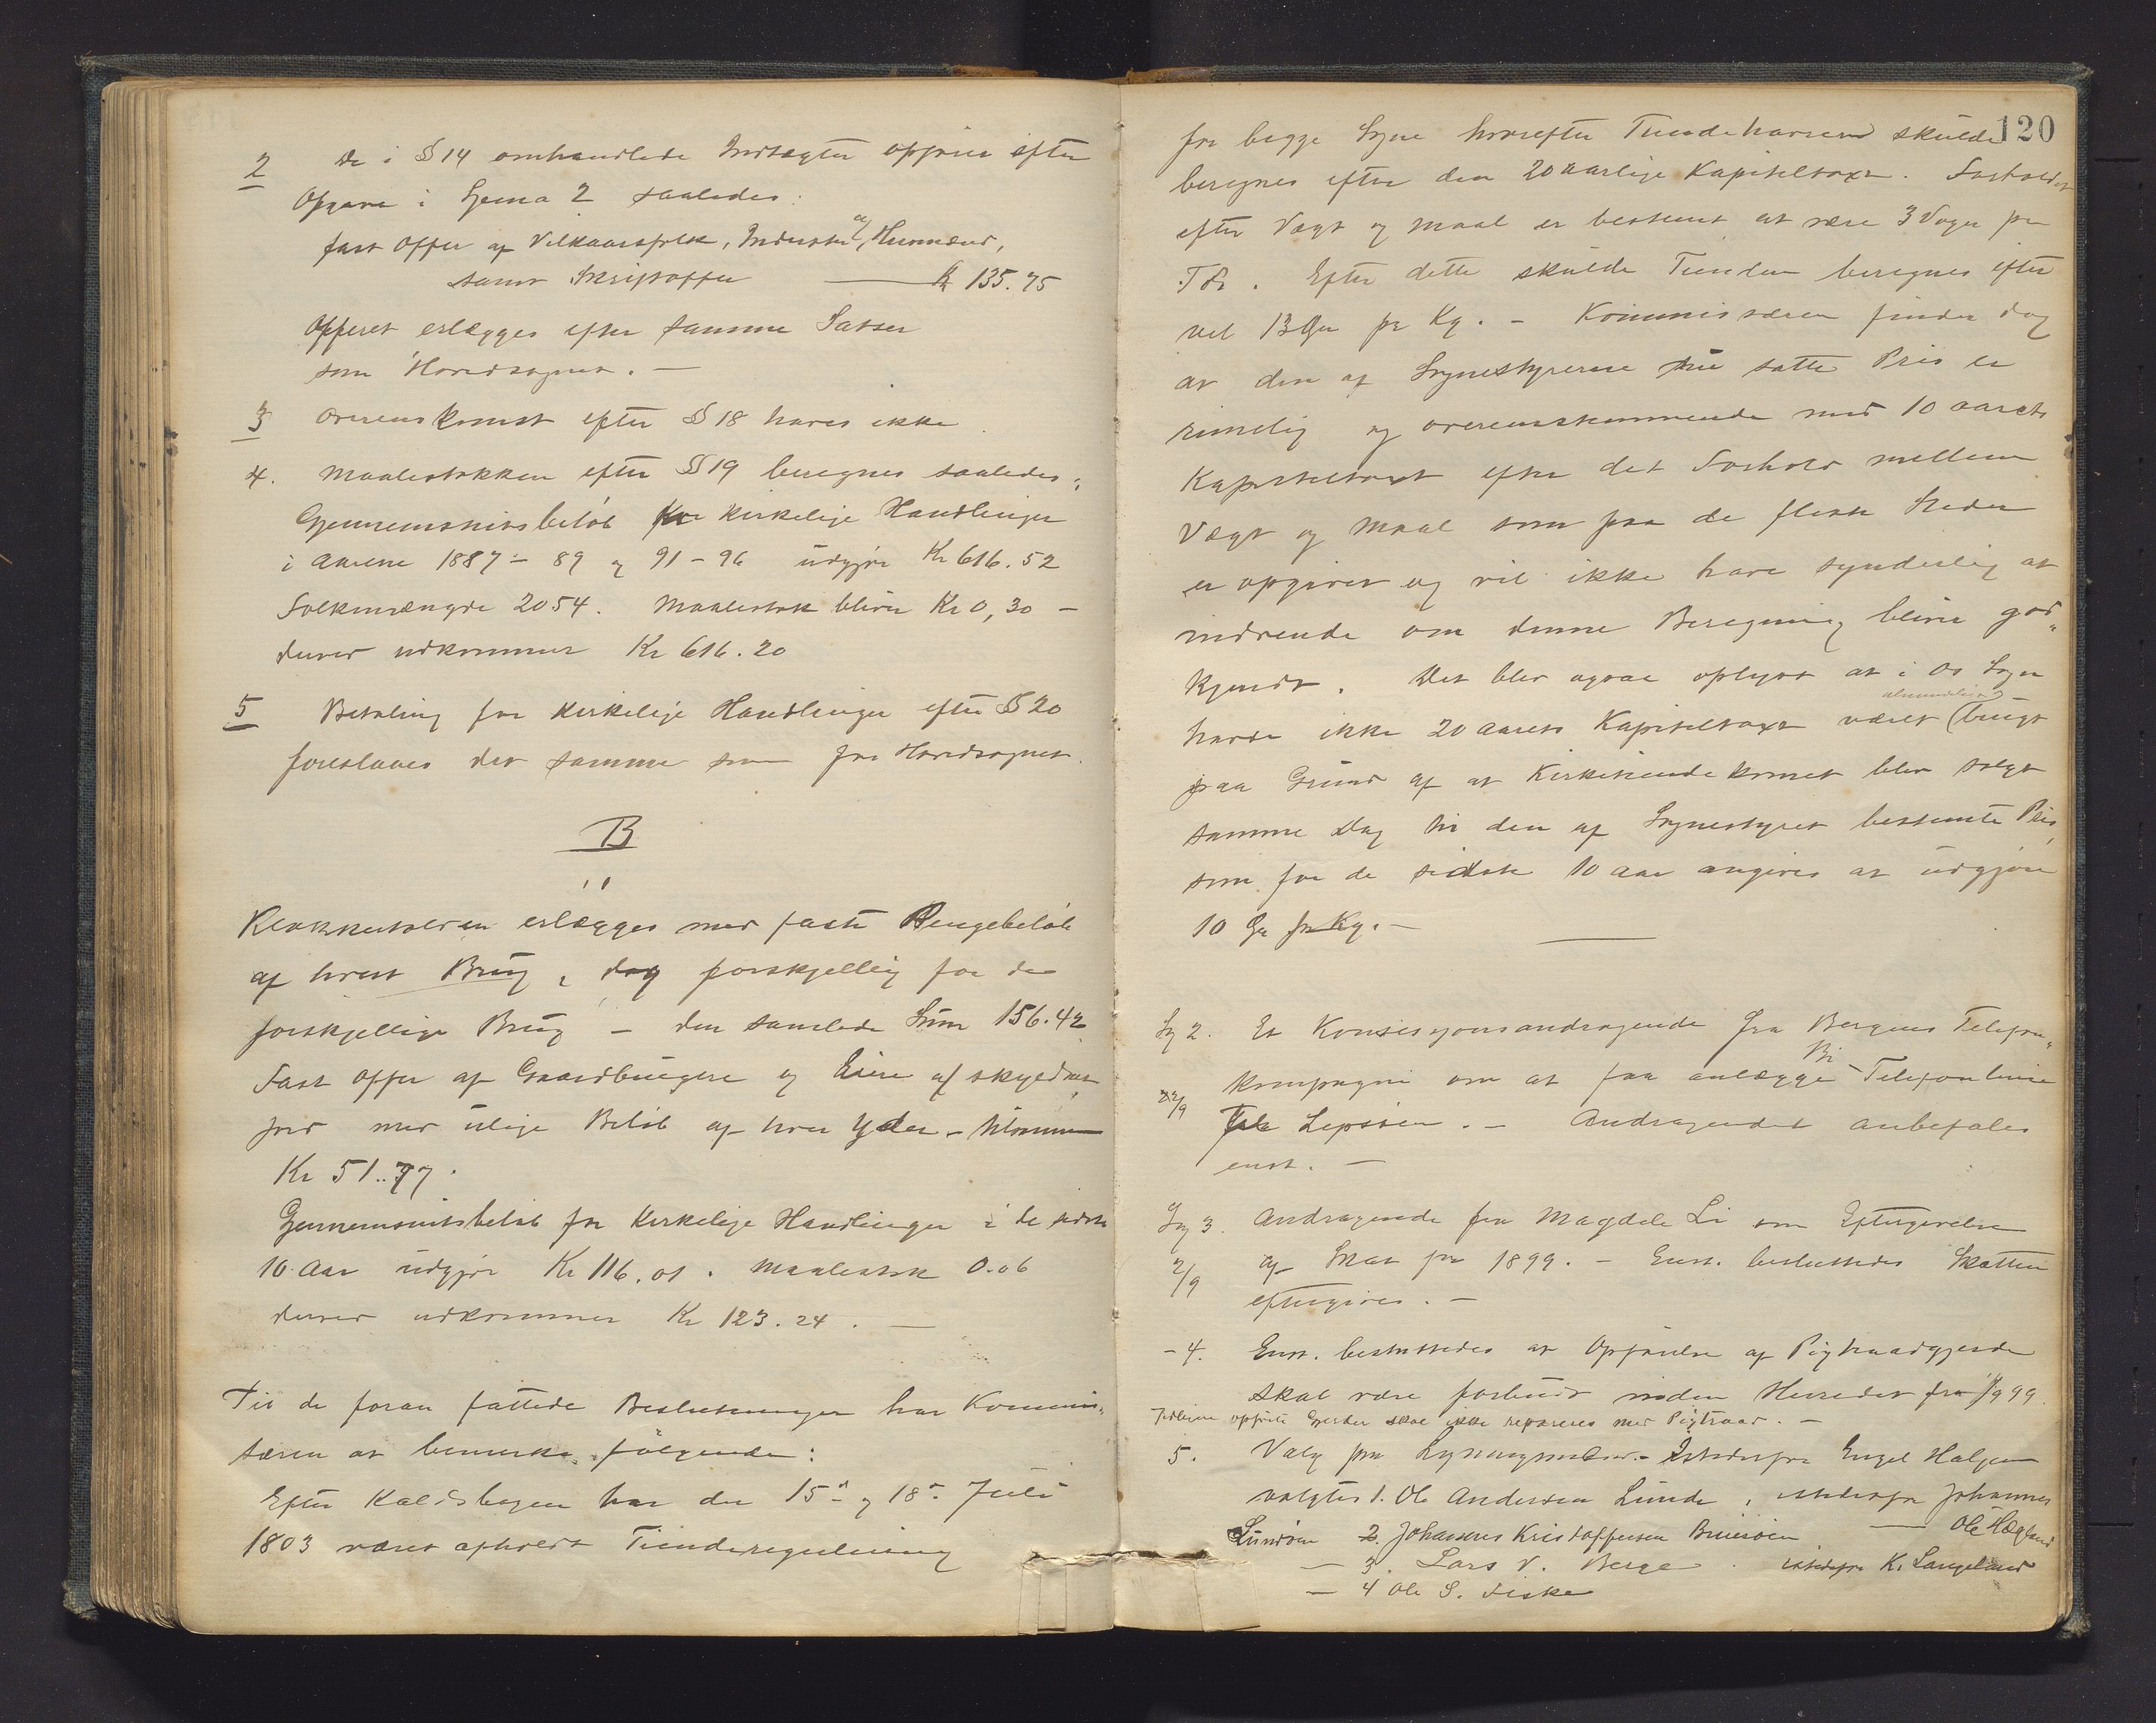 2 De i §14 omhandlede Indtægter opføres efter
Opgave i Sjema 2 saaledes:
fast Offer af Vilkaarsfolk, Inderster og Husmænd,
samt Skriftoffer — Kr 135.75
Offeret erlægges efter samme Satser
som i Hovedsognet. —
3 Overenskomst efter §18 haves ikke
4. Maalestokken efter §19 beregnes saaledes:
Gjennemsnitsbeløb for kirkelige Handlinger
i Aarene 1887 - 89 og 91 - 96 udgjør Kr 616.52
Folkemængde 2054. Maalestok bliver Kr 0,30 -
derved udkommer Kr 616.20
5 Betaling for kirkelige Handlinger efter §20
foreslaaes det samme som for Hovedsognet.
B
Klokkertolden erlægges med faste Pengebeløb
af hvert Brug, dog forskjellig for de
forskjellige Brug - den samlede Sum 156.42
Fast Offer af Gaardbrugere og Eiere af skyldsat
Jord med ulige Beløb af hver Yder - tilsammen
Kr 51..77.
Gjennemsnitsbeløb for kirkelige Handlinger i de sidste
10 Aar udgjør Kr 116.01. Maalestok 0.06
derved udkommer Kr 123.24. —
Til de foran fattede Beslutninger har Kommis„
særen at bemerke følgende:
Efter Kaldsbogen har der 15de og 18de Juli
1803 været afholdt Tienderegulering
120
for begge Sogne hvorefter Tiendehavren skulde
beregnes efter den 20 aarlige Kapiteltaxt. Forholdet
efter Vægt og Maal er bestemt at være 3 Voger pr
Tde. Efter dette skulde Tienden beregnes efter
vel 13 Øre pr Kg. - Kommissæren finder dog
at den af Sognestyrerne satte Pris er
rimelig og overensstemmende med 10 aarets
Kapiteltaxt efter det Forhold mellem
Vægt og Maal som paa de fleste Steder
er opgivet og vil ikke have synderlig at
indvende om denne Beregning bliver god„
kjendt. Det blev ogsaa oplyst at i Os Sogn
havde ikke 20 aarets Kapiteltaxt været (almindelig) brugt
paa Grund af at Kirketiendekornet blev solgt
samme Dag til den af Sognestyret bestemte Pris,
som for de sidste 10 Aar angives at udgjøre
10 Øre pr Kg. —
Sg 2. Et Konsesjonsandragende fra Bergens Telefon„
22/9 kompagni om at faa anlægge Bi-Telefonlinie
til Lepsøen. - Andragendet anbefales
enst. —
Sg 3. Andragende fra Magdele Li om Eftergivelse
2/9 af Skat for 1899. - Enst. besluttedes Skatten
eftergives. —
- 4. Enst. besluttedes at Opførelse af Pigtraadgjerde
skal være forbudt inden Herredet fra 1/9 99.
Tidligere opførte Gjerder skal ikke repareres med Pigtraad. —
5. Valg paa Synsmænd. - Istedenfor Engel Halgen
valgtes 1. Ole Andersen Lunde, istedenfor Johannes
Sundøen 2. Johannes Kristoffersen Bruerøen — Ole Hægland
— 3. Lars V. Berge istedenfor K. Langeland
— 4 Ole S. Tiske